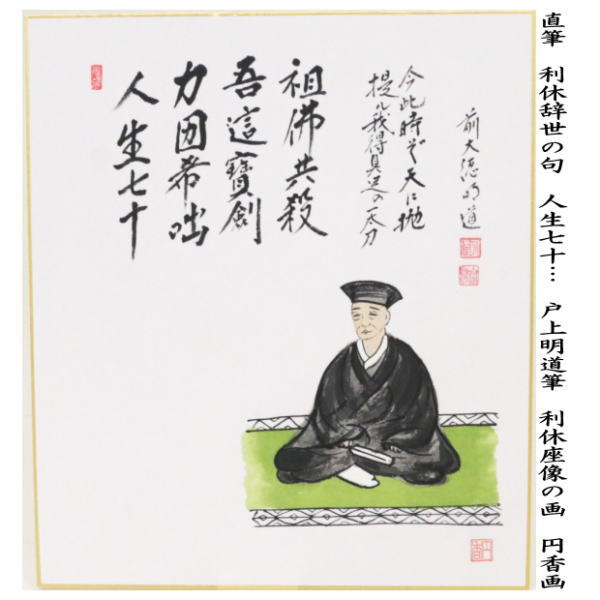 直筆　利休辞世の句　人生七十…　戸上明道筆　利休座像の画　円香画
人生七十
力囲希咄
吾這寶劍
祖佛共殺
提ル我得具足の一太刀
今此時ぞ天に抛
前大徳明道